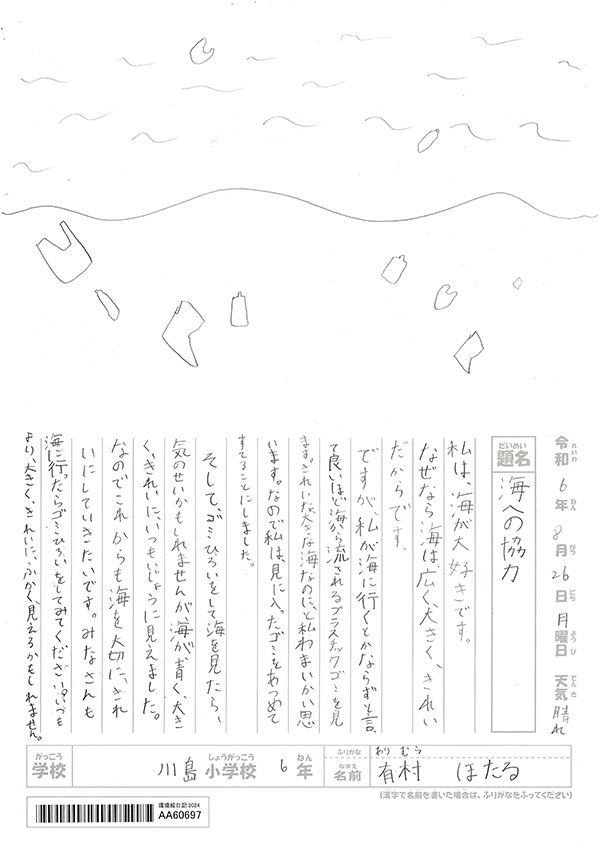 令和6年8月26日月曜日 天気晴れ
れいわ ねん がつ にち ようび てんき
だいめい
題名 海への協力
私は、海が大好きです。
なぜなら海は広く、大きく、きれい
だからです。
ですが、私が海に行くとかならずと言っ
て良いほど海から流されるプラスチックゴミを見
ます。きれいな大きな海なのに、と私わまいかい思
います。なので私は、見に入ったゴミをあつめて
すてることにしました。
そして、ゴミひろいをして海を見たら、
気のせいかもしれませんが、海が青く、大き
く、きれいに、いつもいじょうに見えました。
なのでこれからも海を大切に、きれ
いにしていきたいです。みなさんも
海に行ったらゴミひろいをしてみてください。いつも
より、大きく、きれいに、ふかく、見えるかもしれません。
がっこう しょうがっこう ねん
学校 川島 小学校 6年
ふりがな ありむら
なまえ
名前 有村 ほたる
(漢字で名前を書いた場合は、ふりがなをふってください)
環境絵日記2024
AA60697